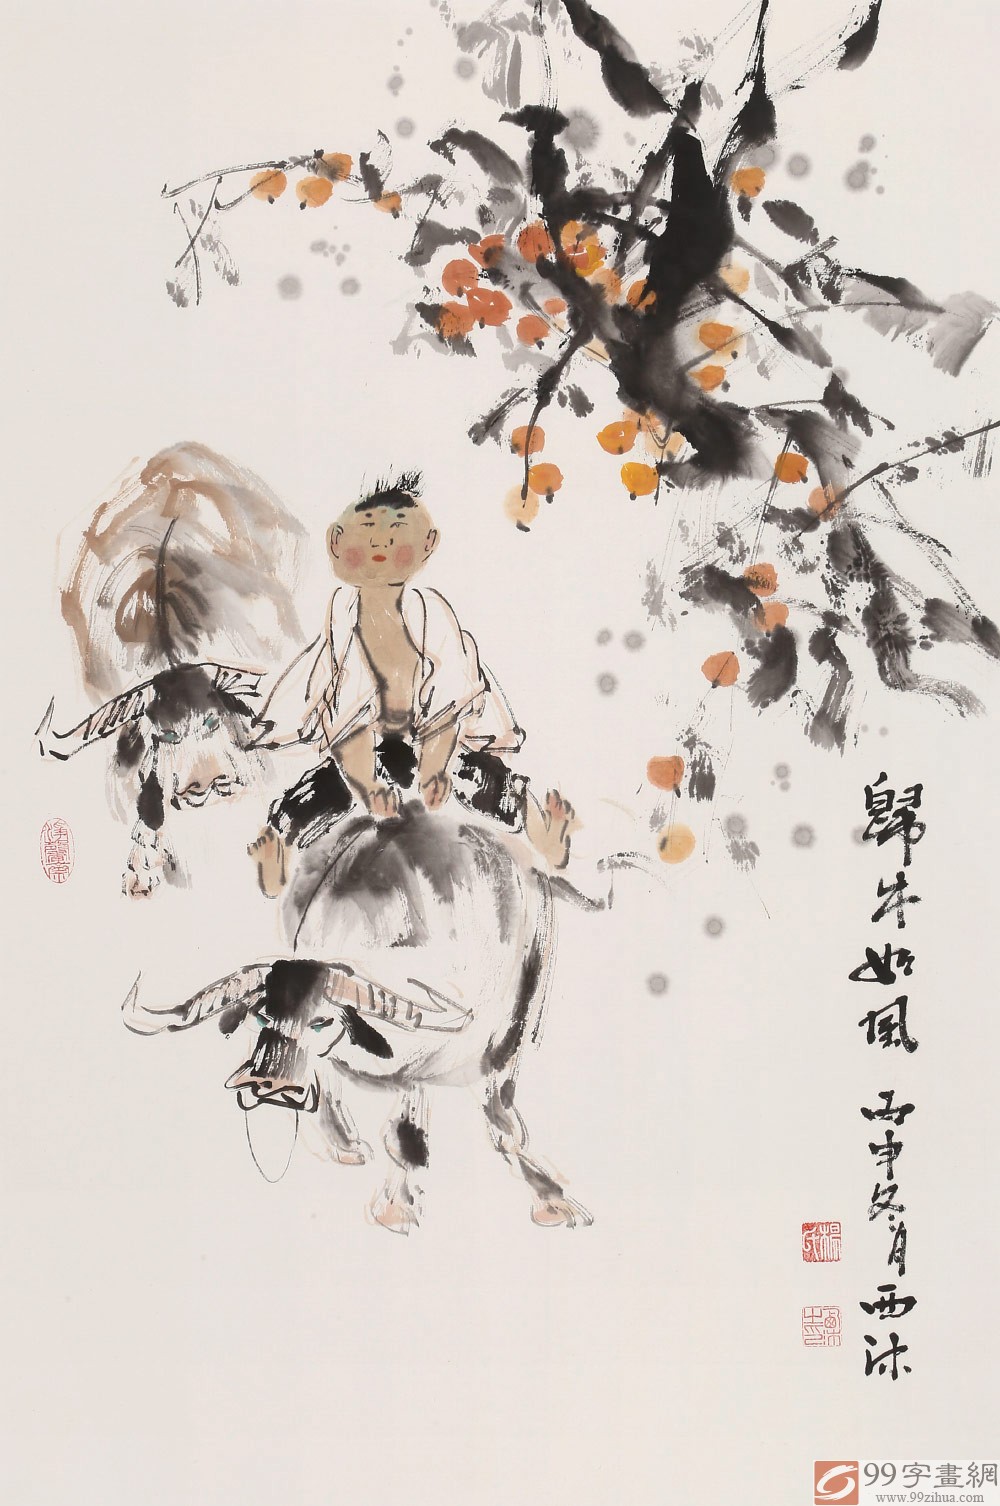 歸牛如風 丙申冬月 西沐
99字畫網
www.99zihua.com